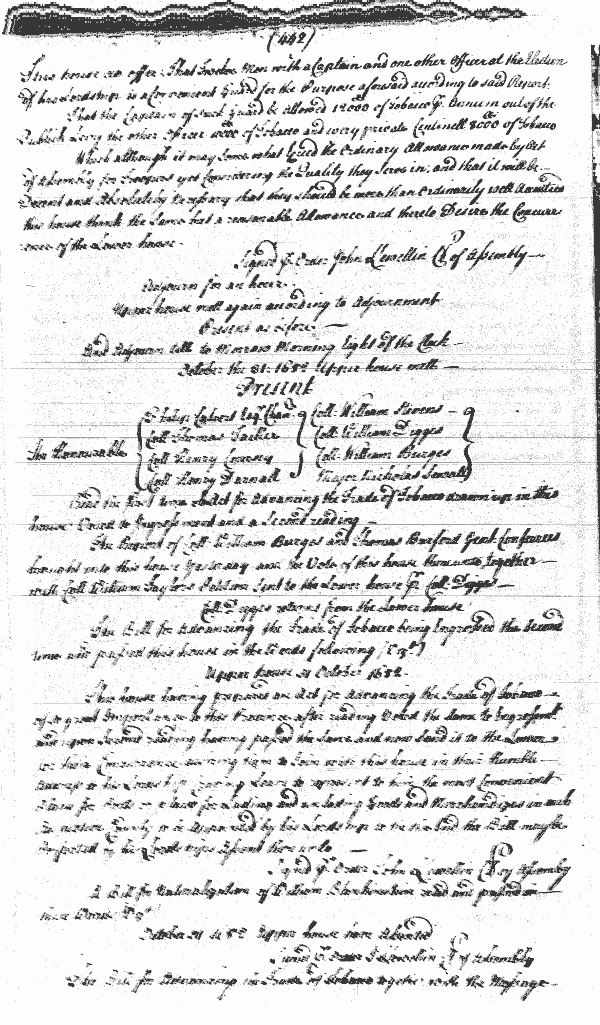 (442)
This house do offer That Twelve Men with a Captain and one other Officer at the Election
of his Lordship is a Convenient Guard for the Purpose aforesaid according to said Report.
That the Captain of such guard be allowed 12000 of Tobacco P. Annum out of the
Publick Levy the other Officer of Tobacco and every private Centinell 8000 of Tobacco
Which although it may somewhat Exceed the Ordinary Allowance made by Act
of Assembly for yet Considering the Quality they serve in, and that it will be
Decent and Absolutely necessary that they should be more than ordinarily well
this house thank the same but a reasonable Allowance and thereto Desire the Concurr
ence of the Lower house.
Signed P. Order John Llewellin Cl of Assembly
Adjourn for an hour.
Upper house mett again according to Adjournment
Present as before.
And Adjourn till to Morrow Morning Eight of the Clock
October the 31. 1682 Upper house mett
Present
The Honourable
Philip Calvert Esqr. Chanr.
Coll. Thomas Tailler
Coll. Henry Coursey
Coll. Henry Darnall
Coll. William Stevens
Coll. William Digges
Coll. William Burges
Mayor Nicholas Sewall
Read the first time the Act for Advancing the Trade of Tobacco drawn up in this
house. Voted to Ingrossment and a Second reading
The Report of Coll. William Burges and Thomas Burford Gent. Conferees
brought into this house Yesterday and the Vote of this house thereunto together
with Coll. William Taylors Petition sent to the Lower house P. Coll. Digges
Coll. Digges returns from the Lower house
The Bill for Advancing the Trade of Tobacco being Ingrossed the Second
time and passed this house in the Words following
Upper house 31 October 1682.
This house having prepared an Act for Advancing the Trade of Tobacco
of so great Importance to this Province after reading Voted the same to Ingrossmt.
and upon Second reading having passed the same and now send it to the Lower
for their Concurrence desiring them to Join with this house in their Humble
Address to his Lordship to appoint to him the most Convenient
places for Ports for Lading and unlading Goods and Merchandizes in each
County to be Appointed by his Lordship to the End the Bill may be
perfected by his Lordships Assent thereunto
Signed P. Order John Llewellin Cl of Assembly
A Bill for Naturalization of William Blankenstein read and passed in
these Words
October 31 1682 Upper house have Assented
Signed P. Order J Llewellin Cl of Assembly
The Bill for Advancing the Trade of Tobacco together with the Message